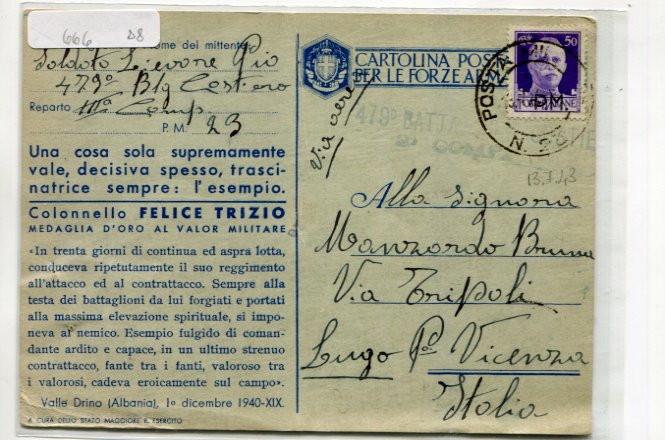 666 D8
Nome del mittente
Soldato Pio
479° Btg Costiero
Reparto IIIa Comp.
P. M. 23
Una cosa sola supremamente
vale, decisiva spesso, trasci-
natrice sempre: l'esempio.
Colonnello FELICE TRIZIO
MEDAGLIA D'ORO AL VALOR MILITARE
«In trenta giorni di continua ed aspra lotta,
conduceva ripetutamente il suo reggimento
all'attacco ed al contrattacco. Sempre alla
testa dei battaglioni da lui forgiati e portati
alla massima elevazione spirituale, si impo-
neva al nemico. Esempio fulgido di coman-
dante ardito e capace, in un ultimo strenuo
contrattacco, fante tra i fanti, valoroso tra
i valorosi, cadeva eroicamente sul campo».
Valle Drino (Albania), 1° dicembre 1940-XIX.
A CURA DELLO STATO MAGGIORE R. ESERCITO
CARTOLINA POS
PER LE FORZE AR
50
POSTA
P.M.
N. 2
479° BATT
Via aerea
13.7.43
Alla Signora
Manzardo Bruna
Via Tripoli
Lugo Vicenza
Italia